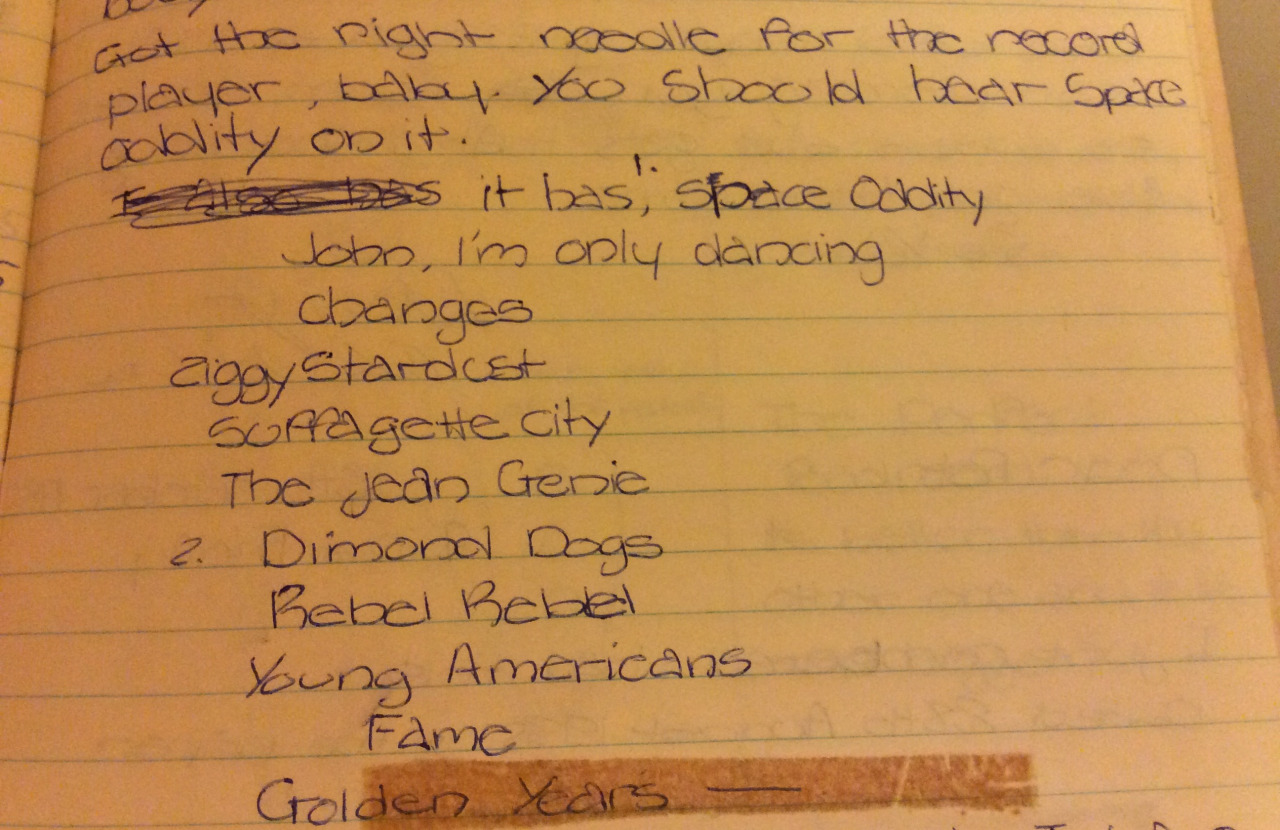 Got the right needle for the record
player, baby. You should hear Space
oddity on it.
it has 1. Space Oddity
John, I'm only dancing
changes
ziggy Stardust
Suffragette city
The Jean Genie
2. Dimond Dogs
Rebel Rebel
Young Americans
Fame
Golden Years —